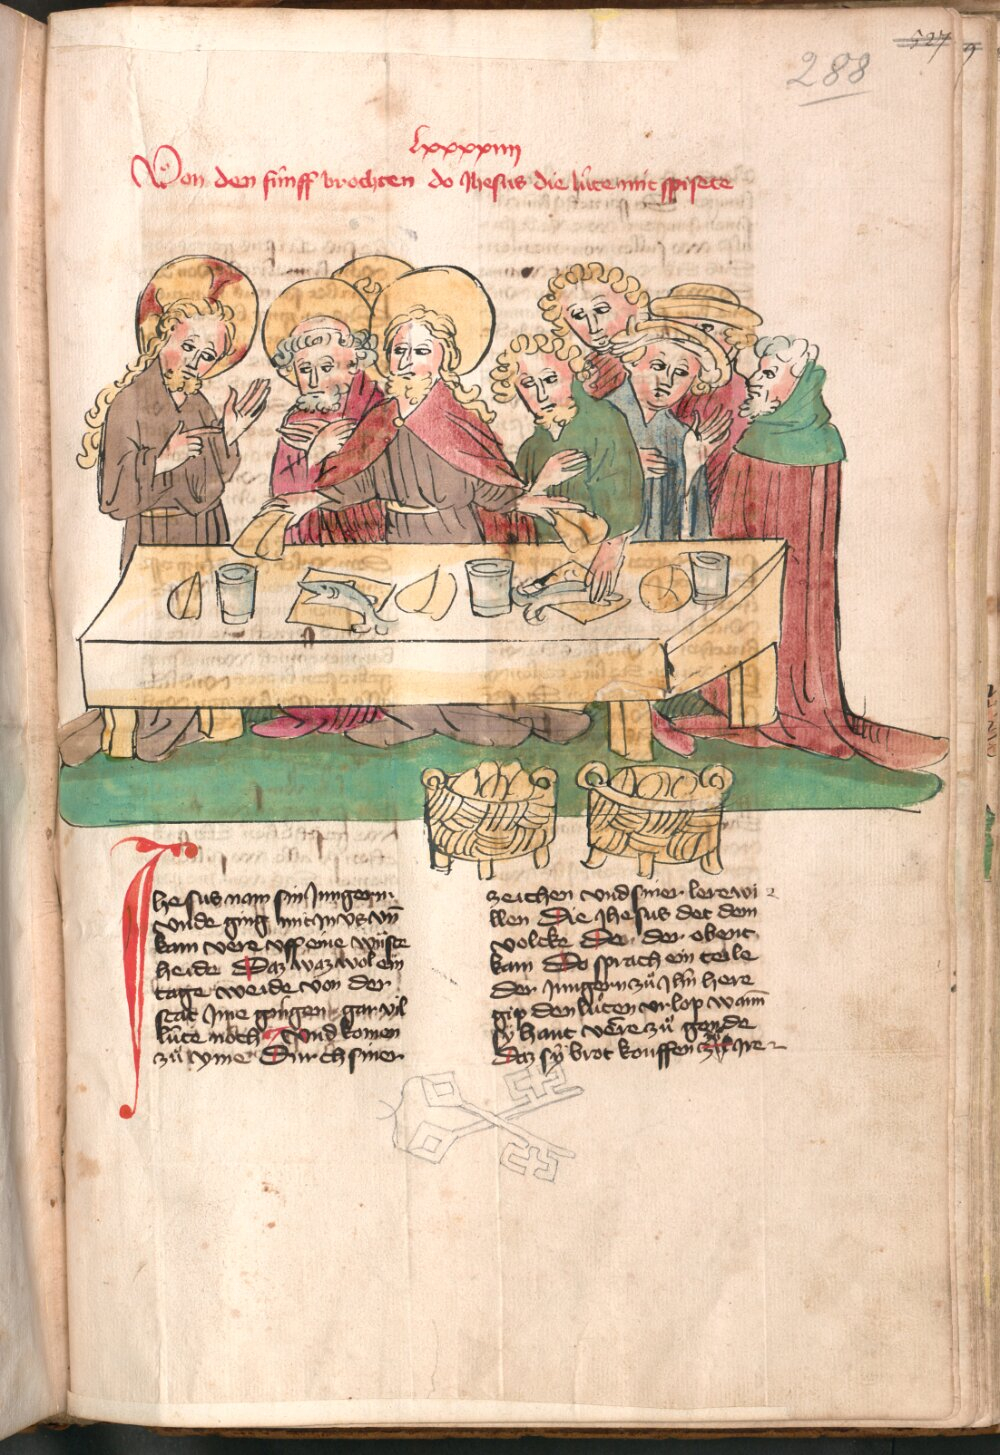 288
527
lxxxxiiii
Von den fúnff brochten do Jhesus die lúte mit spisete
Jhesus nam sin Jungern
vnde ging mit In vs vn̄
kam vere vff eine wúste
heide Daz waz wol ein
tage weide von der
stat Jme gingen gar vil
lúte noch Vnd komen
zů yme Durch siner
zeichen vnd siner lere wi
llen Die Jhesus det dem
volcke Do der obent
kam Do sprach ein teile
der Jungern zů Jhm̄ here
gip den lúten vrlop wann̄
sy hant vere zů gende
Daz sy brot kouffen zů Jre